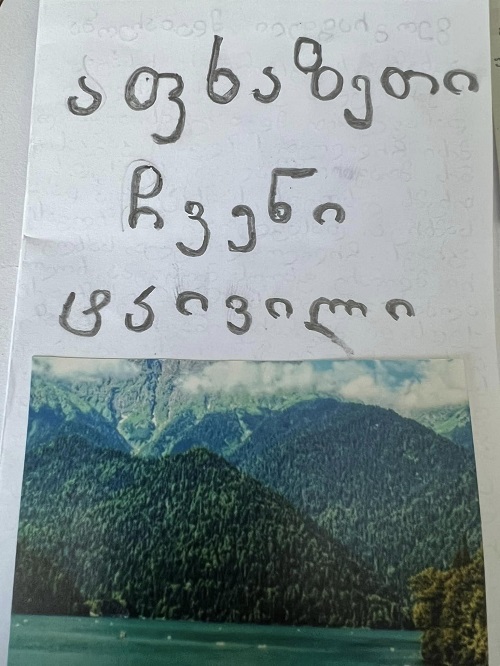 აფხაზეთი
ჩვენი
ტკივილი